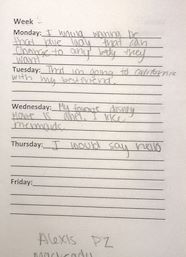 Week -
Monday: I would wanna be
that blue lady that can
change to any body they
want
Tuesday: That im going to california
with my boyfriend.
Wednesday: My favorite disney
movie is ariel. I like
mermaids.
Thursday: I would say hello
Friday:
Alexis P2